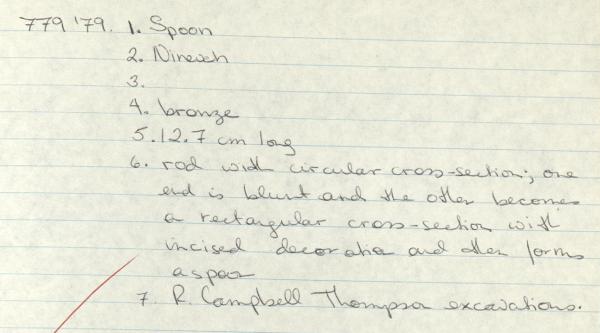 779 '79. 1. Spoon
2. Nineveh
3.
4. bronze
5. 12.7 cm long
6. rod with circular cross-section; one
end is blunt and the other becomes
a rectangular cross-section with
incised decoration and then forms
a spoon
7. R. Campbell Thompson excavations.